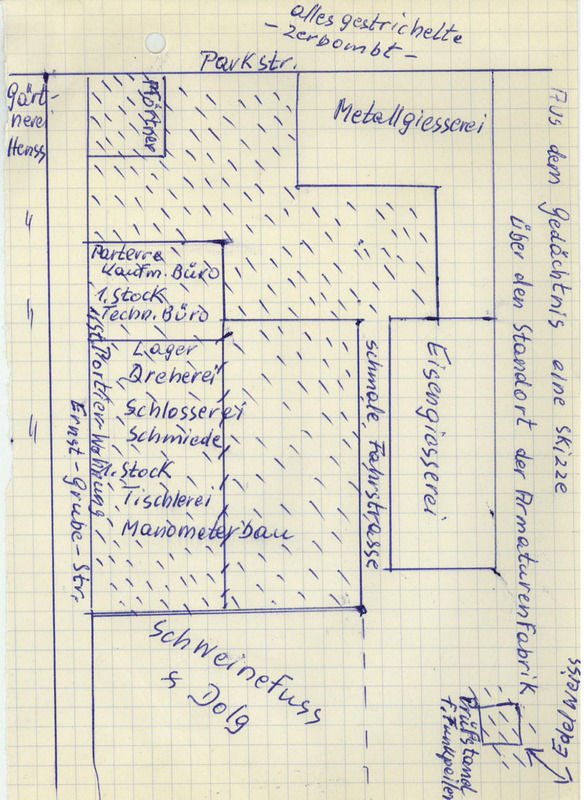 alles gestrichelte
- zerbombt -
Parkstr.
Gärt-
nerei
Henss
Pförtner
Metallgiesserei
Aus dem Gedächtnis eine Skizze
über den Standort der Armaturenfabrik
Parterre
Kaufm. Büro
1. Stock
Techn. Büro
Lager
Dreherei
Schlosserei
Schmiede
1. Stock
Tischlerei
Manometerbau
1. St. Portier-Wohnung
Ernst-Grube-Str.
schmale Fahrstrasse
Eisengiesserei
Schweinefuss
& Dolg
Prüfstand
f. Funkpeiler